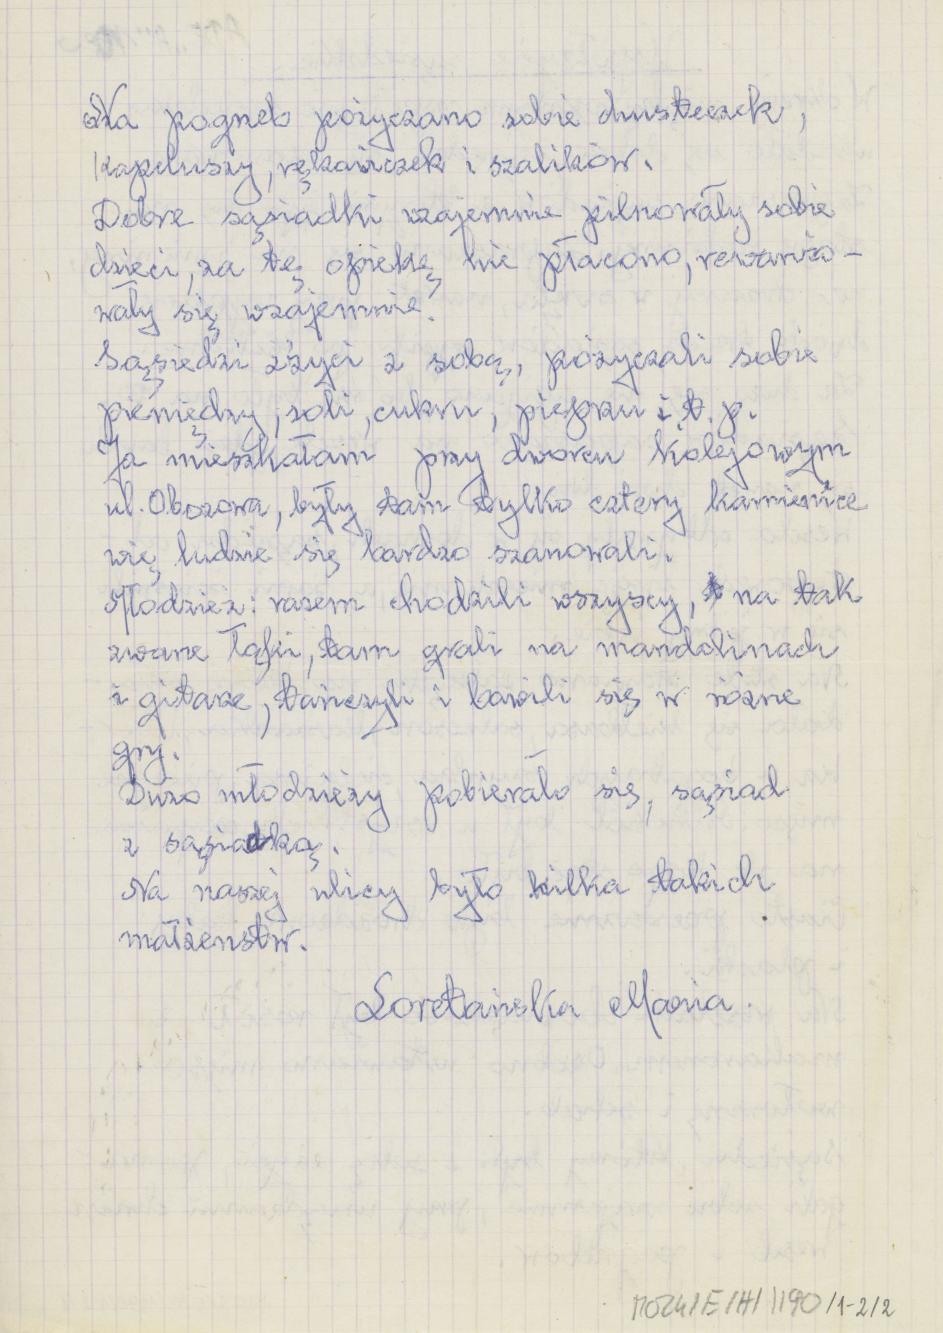 Na pogrzeb pożyczano sobie chusteczek,
kapeluszy, rękawiczek i szalików.
Dobre sąsiadki wzajemnie pilnowały sobie
dzieci, za tę opiekę nie płacono, rewanżo-
wały się wzajemnie.
Sąsiedzi zżyci z sobą, pożyczali sobie
pieniędzy, soli, cukru, pieprzu i t. p.
Ja mieszkałam przy dworcu kolejowym
ul. Obozowa, były tam tylko cztery kamienice
więc ludzie się bardzo szanowali.
Młodzież: razem chodzili wszyscy, na tak
zwane łąki, tam grali na mandolinach
i gitarze, tańczyli i bawili się w różne
gry.
Dużo młodzieży pobierało się, sąsiad
z sąsiadką.
Na naszej ulicy było kilka takich
małżeństw.
Loretańska Maria.